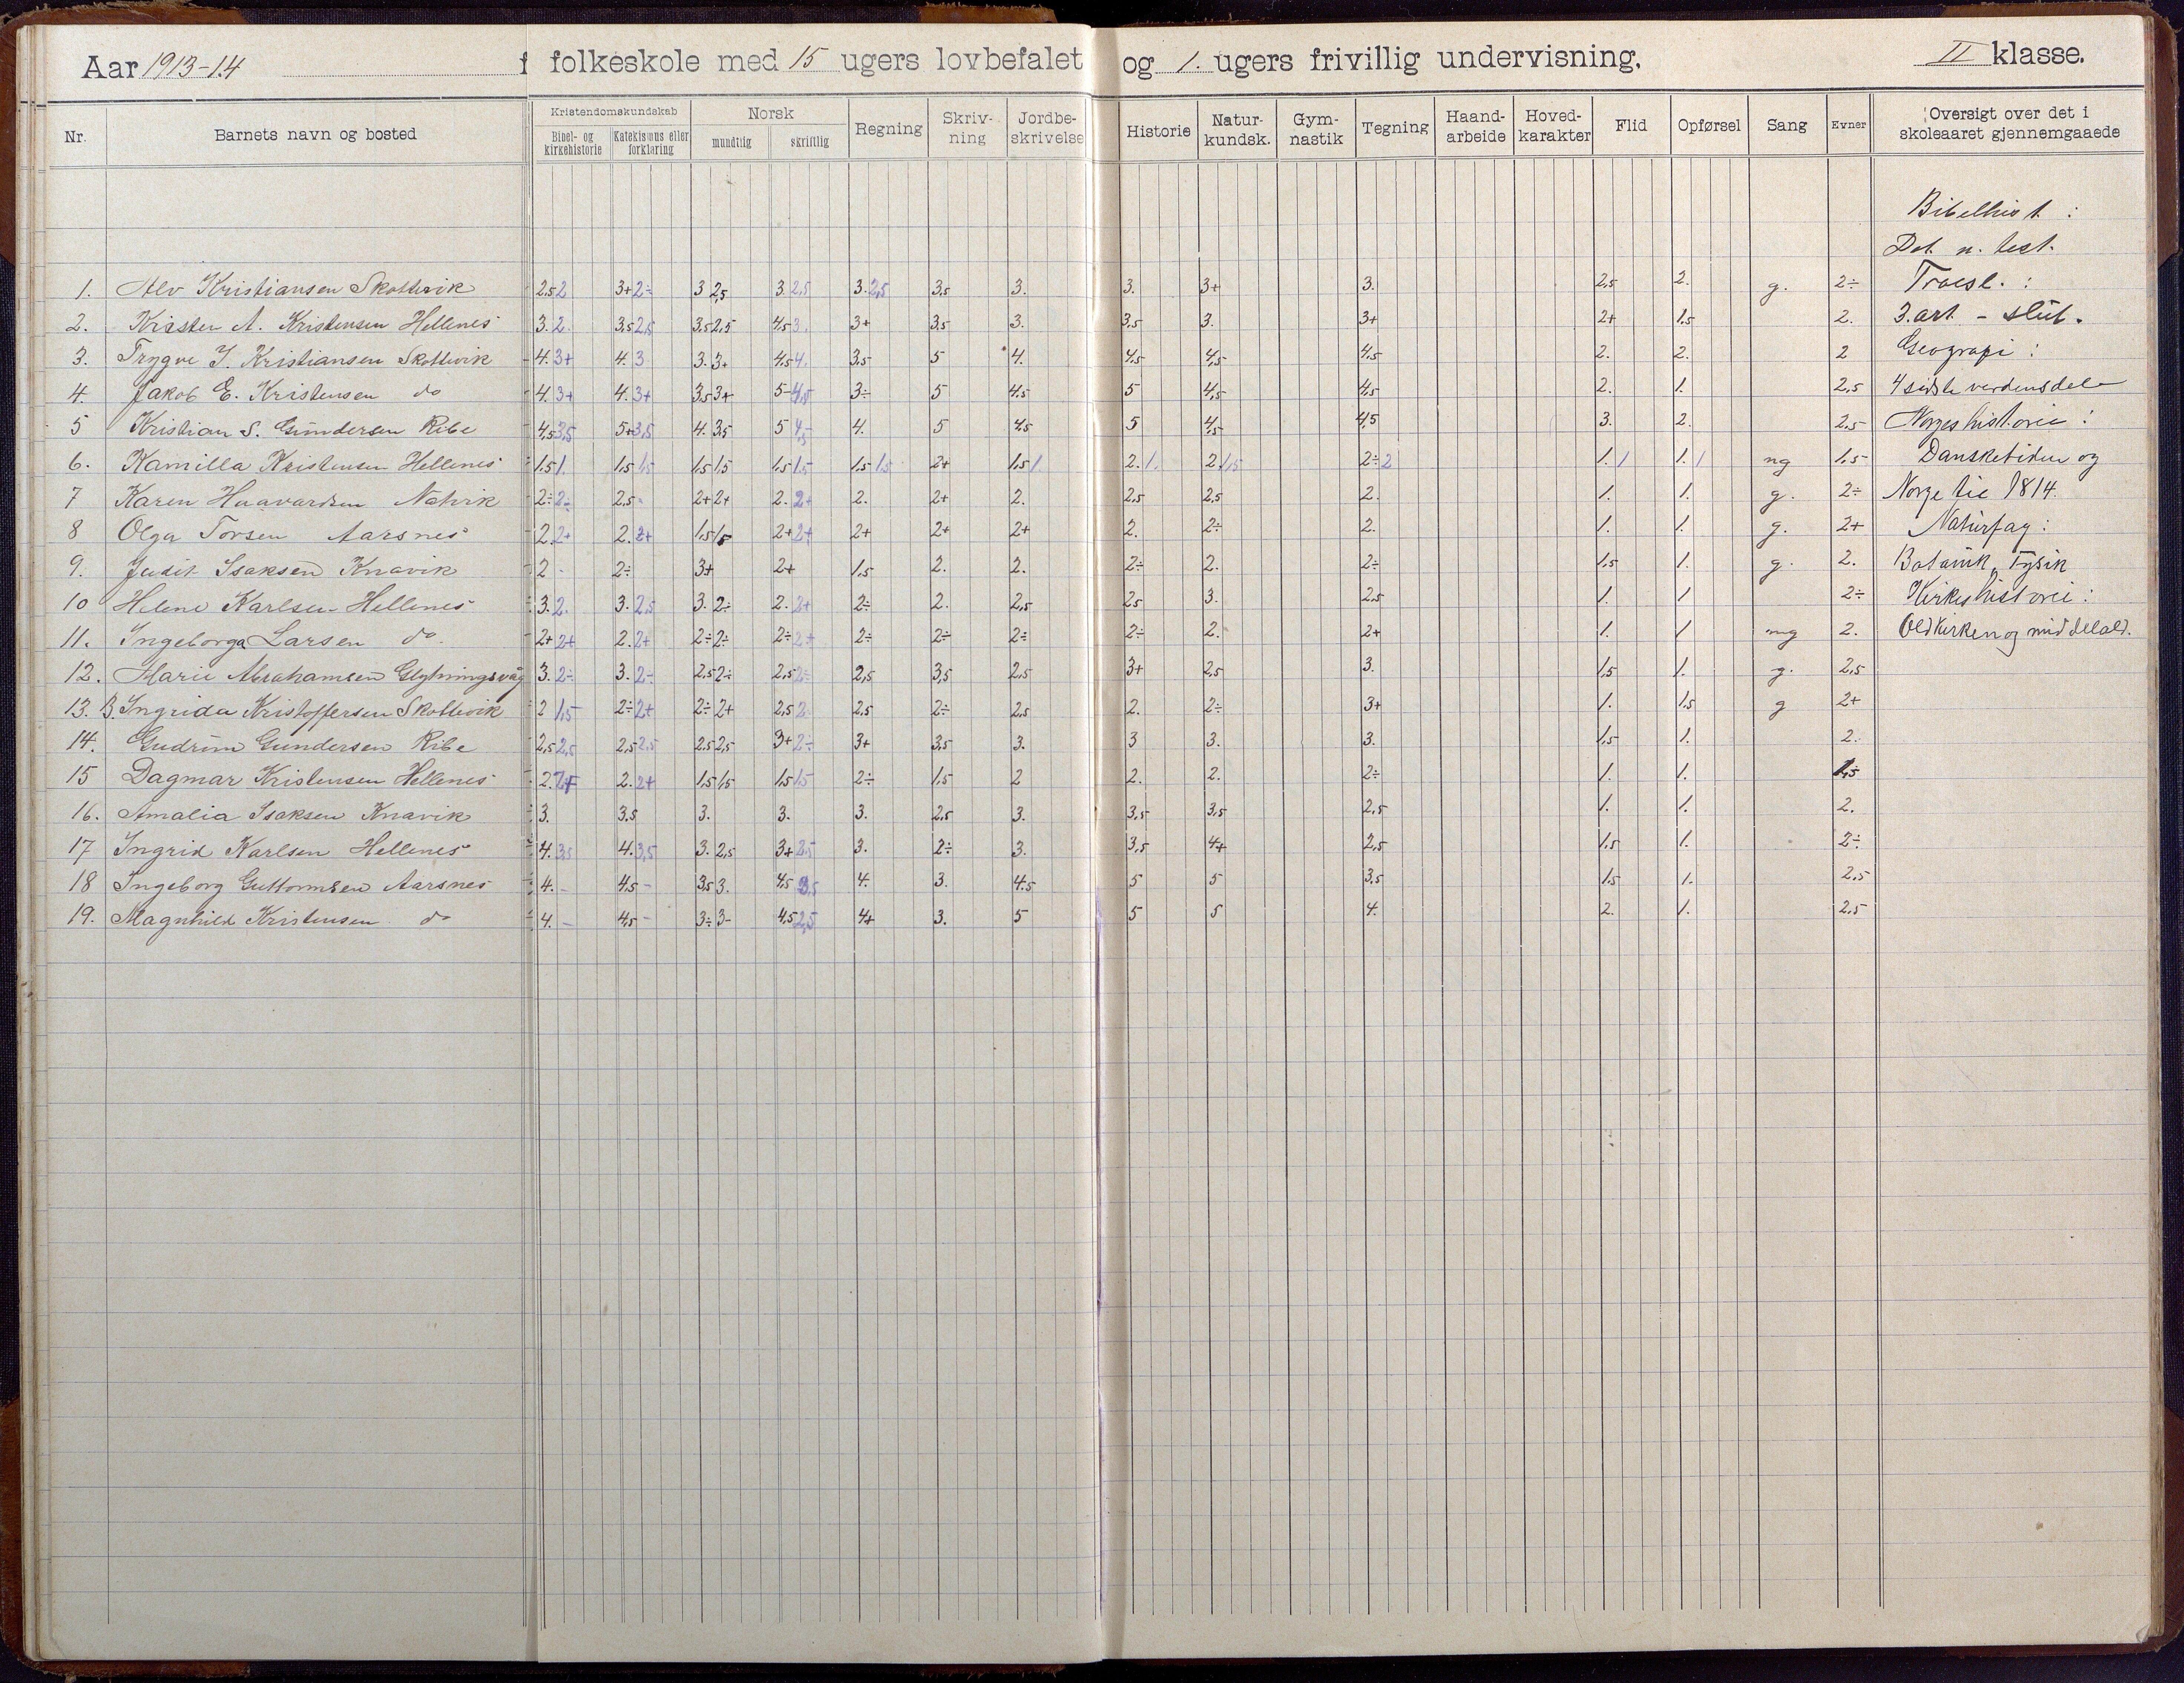 Aar 1913-14 f folkeskole med 15 ugers lovbefalet og 1. ugers frivillig undervisning. II klasse.
Nr. Barnets navn og bosted Kristendomskundskab Bibel- og kirkehistorie Katekismus eller forklaring Norsk mundtlig skriftlig Regning Skriv-ning Jordbe-skrivelse Historie Natur-kundsk. Gym-nastik Tegning Haand-arbeide Hoved-karakter Flid Opførsel Sang Evner Oversigt over det i skoleaaret gjennemgaaede
Bibelhist :
Det n. test.
1. Alv Kristiansen Skottevik 2,5 2 3+ 2÷ 3 2,5 3. 2,5 3. 2,5 3,5 3. 3. 3+ 3. 2,5 2. g. 2÷ Troesl. :
2. Kisster A. Kristensen Hellenes 3. 2. 3,5 2,5 3,5 2,5 4,5 3. 3+ 3,5 3. 3,5 3. 3+ 2+ 1,5 2. 3. art - slut.
3. Trygve J. Kristiansen Skottevik 4. 3+ 4. 3 3. 3+ 4,5 4. 3,5 5 4. 4,5 4,5 4,5 2. 2. 2 Geografi :
4. Jakob E. Kristensen do 4. 3+ 4. 3+ 3,5 3+ 5- 4,5 3÷ 5 4,5 5 4,5 4,5 2. 1. 2,5 4 sidste verdensdele
5 Kristian S. Gundersen Ribe 4,5 3,5 5+ 3,5 4. 3,5 5 4,5 4. 5 4,5 5 4,5 4,5 3. 2. 2,5 Norges historie :
6. Kamilla Kristensen Hellenes 1,5 1. 1,5 1,5 1,5 1,5 1,5 1,5 1,5 1,5 2+ 1,5 1 2. 1. 2. 1,5 2÷ 2 1. 1 1. 1 ng 1,5 Dansketiden og
7 Karen Haavardsen Nøtvik 2÷ 2÷ 2,5 - 2+ 2+ 2. 2+ 2. 2+ 2. 2,5 2,5 2. 1. 1. g. 2÷ Norge til 1814.
8 Olga Torsen Aarsnes 2. 2+ 2. 2+ 1,5 1,5 2+ 2+ 2+ 2+ 2+ 2. 2÷ 2. 1. 1. g. 2+ Naturfag :
9. Judit Isaksen Knavik 2 - 2÷ 3+ 2+ 1,5 2. 2. 2÷ 2. 2÷ 1,5 1. g. 2. Botanik, Fysik
10 Helene Karlsen Hellenes 3. 2. 3. 2,5 3. 2÷ 2. 2+ 2÷ 2. 2,5 2,5 3. 2,5 1. 1 2÷ Kirkeshistorie :
11. Ingeborga Larsen do. 2+ 2+ 2. 2+ 2÷ 2÷ 2÷ 2+ 2÷ 2÷ 2÷ 2÷ 2. 2+ 1. 1 mg 2. Oldkirken og middelald.
12. Marie Abrahamsen 3. 2÷ 3. 2÷ 2,5 2÷ 2,5 2÷ 2,5 3,5 2,5 3+ 2,5 3. 1,5 1. g. 2,5
13. B. Ingrida Kristoffersen Skottevik 2 1,5 2÷ 2+ 2÷ 2+ 2,5 2 2,5 2÷ 2,5 2. 2÷ 3+ 1. 1,5 g 2+
14. Gudrun Gundersen Ribe 2,5 2,5 2,5 2,5 2,5 2,5 3+ 2÷ 3+ 3,5 3. 3 3. 3. 1,5 1. 2.
15 Dagmar Kristensen Hellenes 2. 2+ 2. 2+ 1,5 1,5 1,5 1,5 2÷ 1,5 2 2. 2. 2÷ 1. 1. 1,5
16. Amalia Isaksen Knavik 3. 3,5 3. 3. 3. 2,5 3. 3,5 3,5 2,5 1. 1. 2.
17 Ingrid Karlsen Hellenes 4. 3,5 4. 3,5 3. 2,5 3+ 2,5 3. 2÷ 3. 3,5 4+ 2,5 1,5 1. 2÷
18 Ingeborg Guttormsen Aarsnes 4. - 4,5 - 3,5 3. 4,5 3,5 4. 3. 4,5 5 5 3,5 1,5 1. 2,5
19. Magnhild Kristensen do 4. - 4,5 - 3÷ 3- 4,5 2,5 4+ 3. 5 5 5 4. 2. 1. 2,5